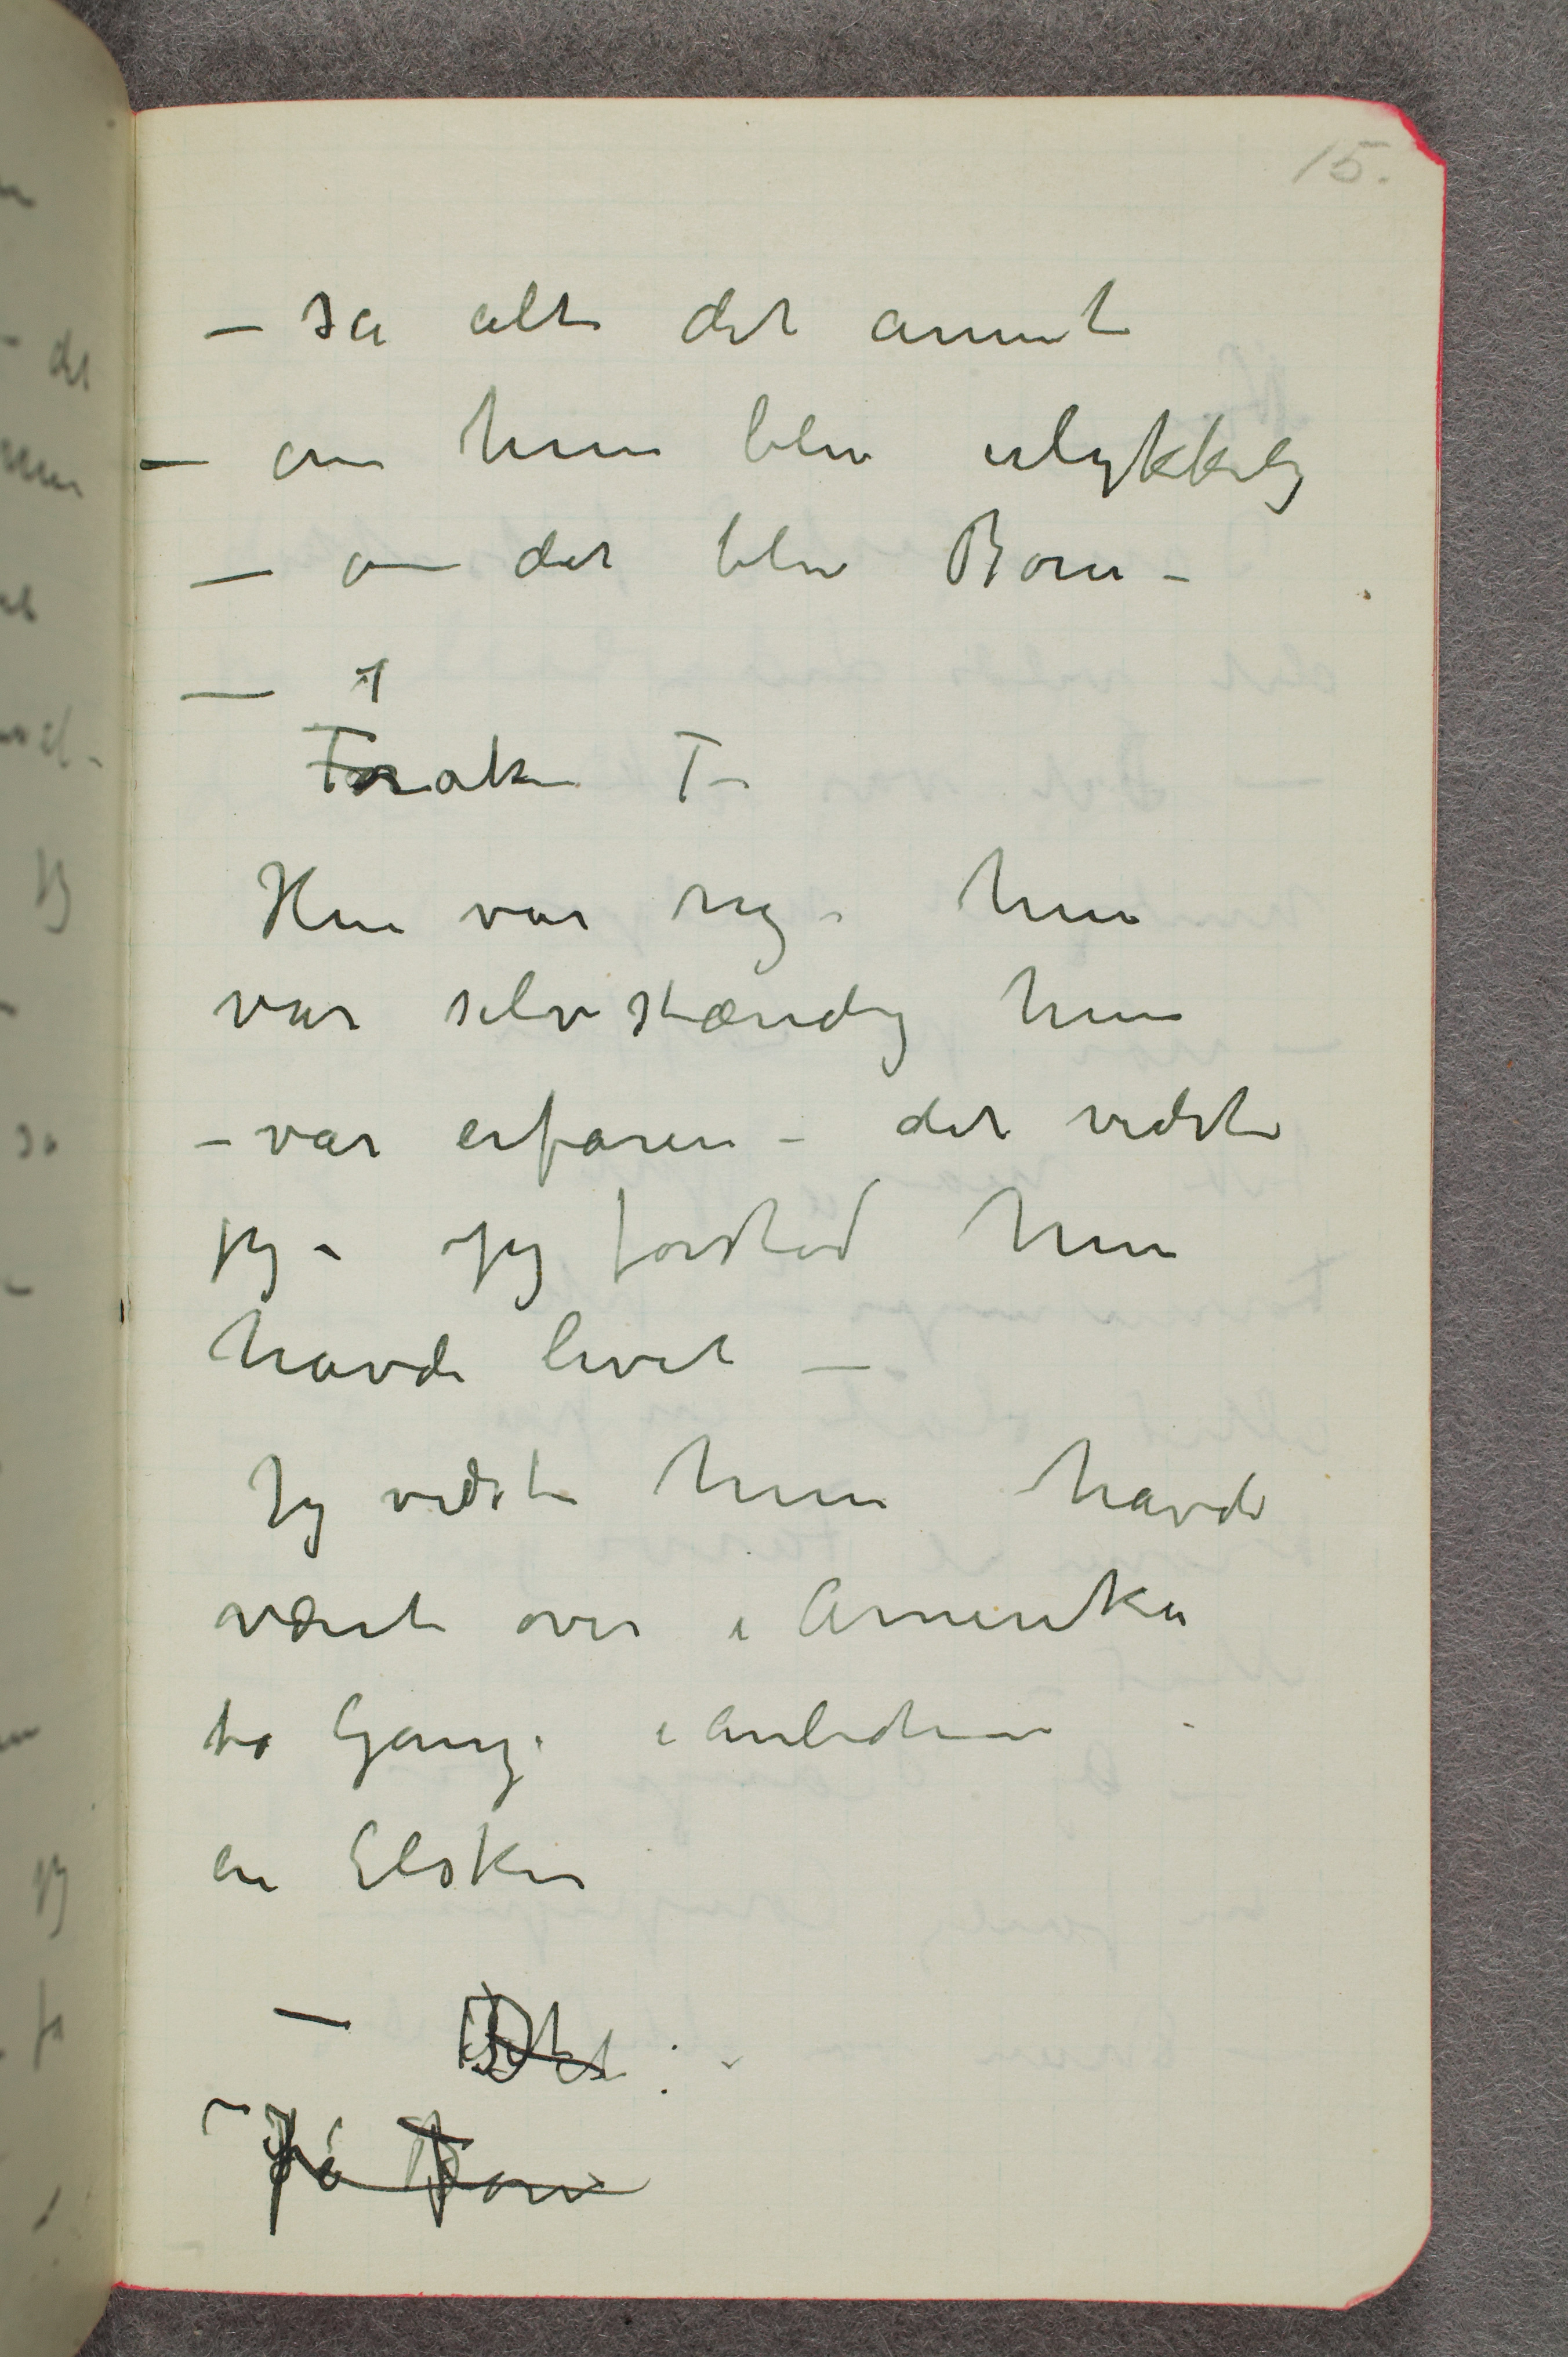 15.
– så alt det annet
– om hun blev ulykkelig
– om det blev Børn –
–
T–
Hun var rig – hun
var selvstændig hun
– var erfaren – det vidste
jeg – jeg forstod hun
havde levet –
Jeg vidste hun havde
været over i Amerika
to Gange i Anledning
en Elsker
– Det